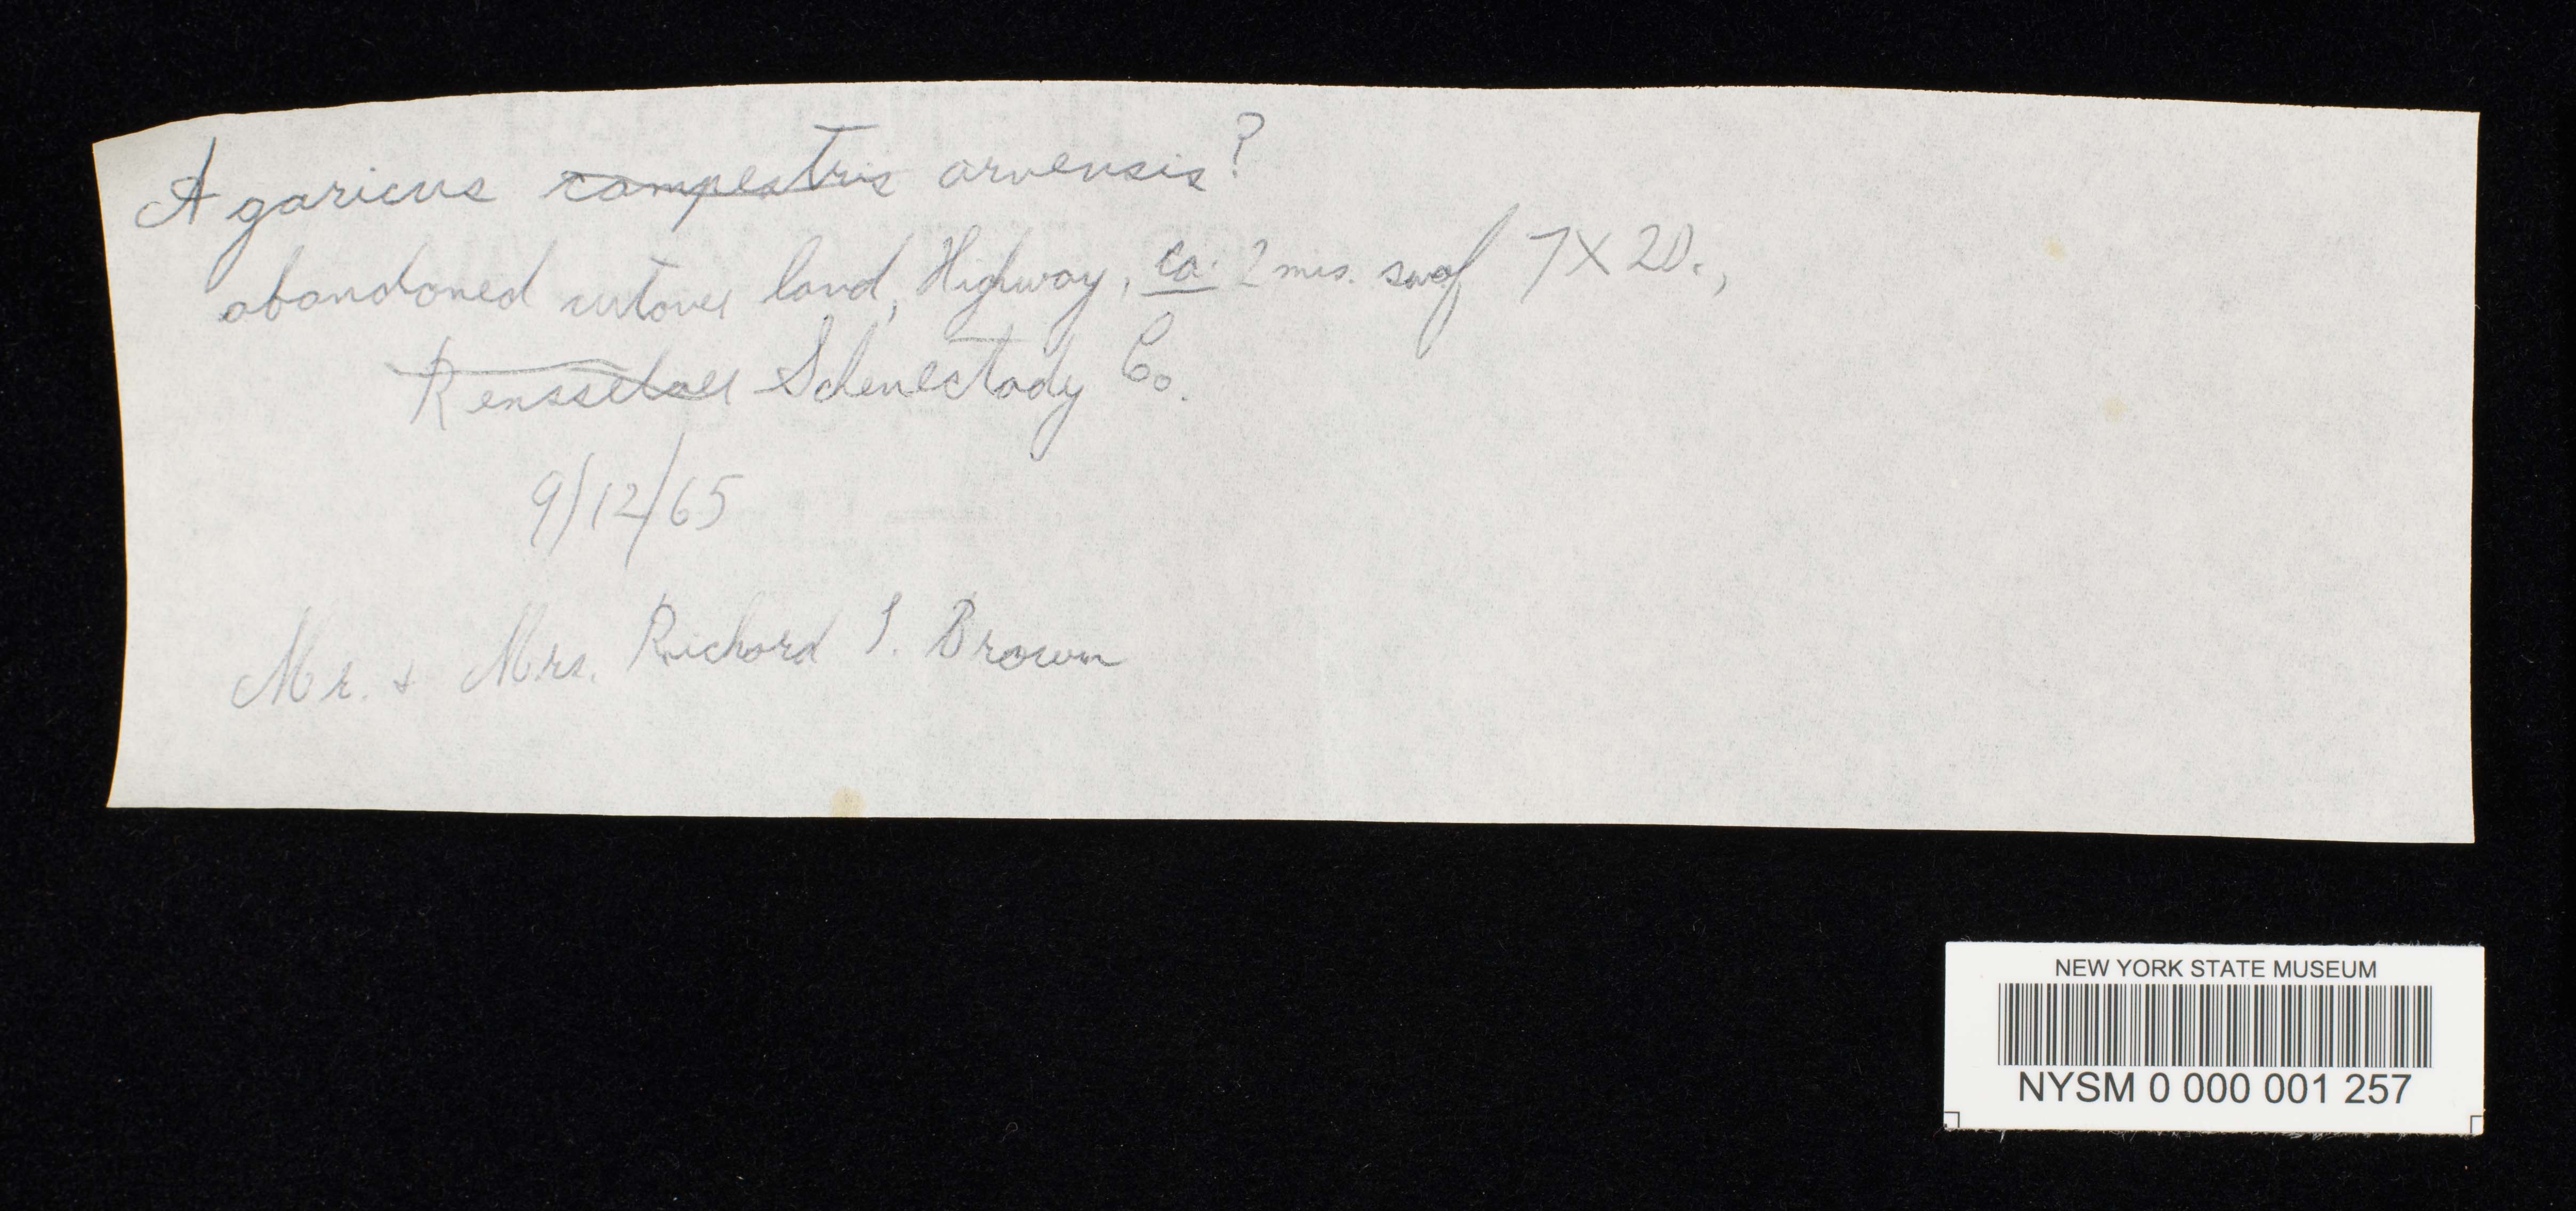 Agaricus campestris arvensis?
abandoned cutover land, Highway, ca. 2 mis. sw of 7 X 20.,
Rensselaer Schenectady Co.
9/12/65
Mr. + Mrs. Richard I. Brown
NEW YORK STATE MUSEUM
NYSM 0 000 001 257